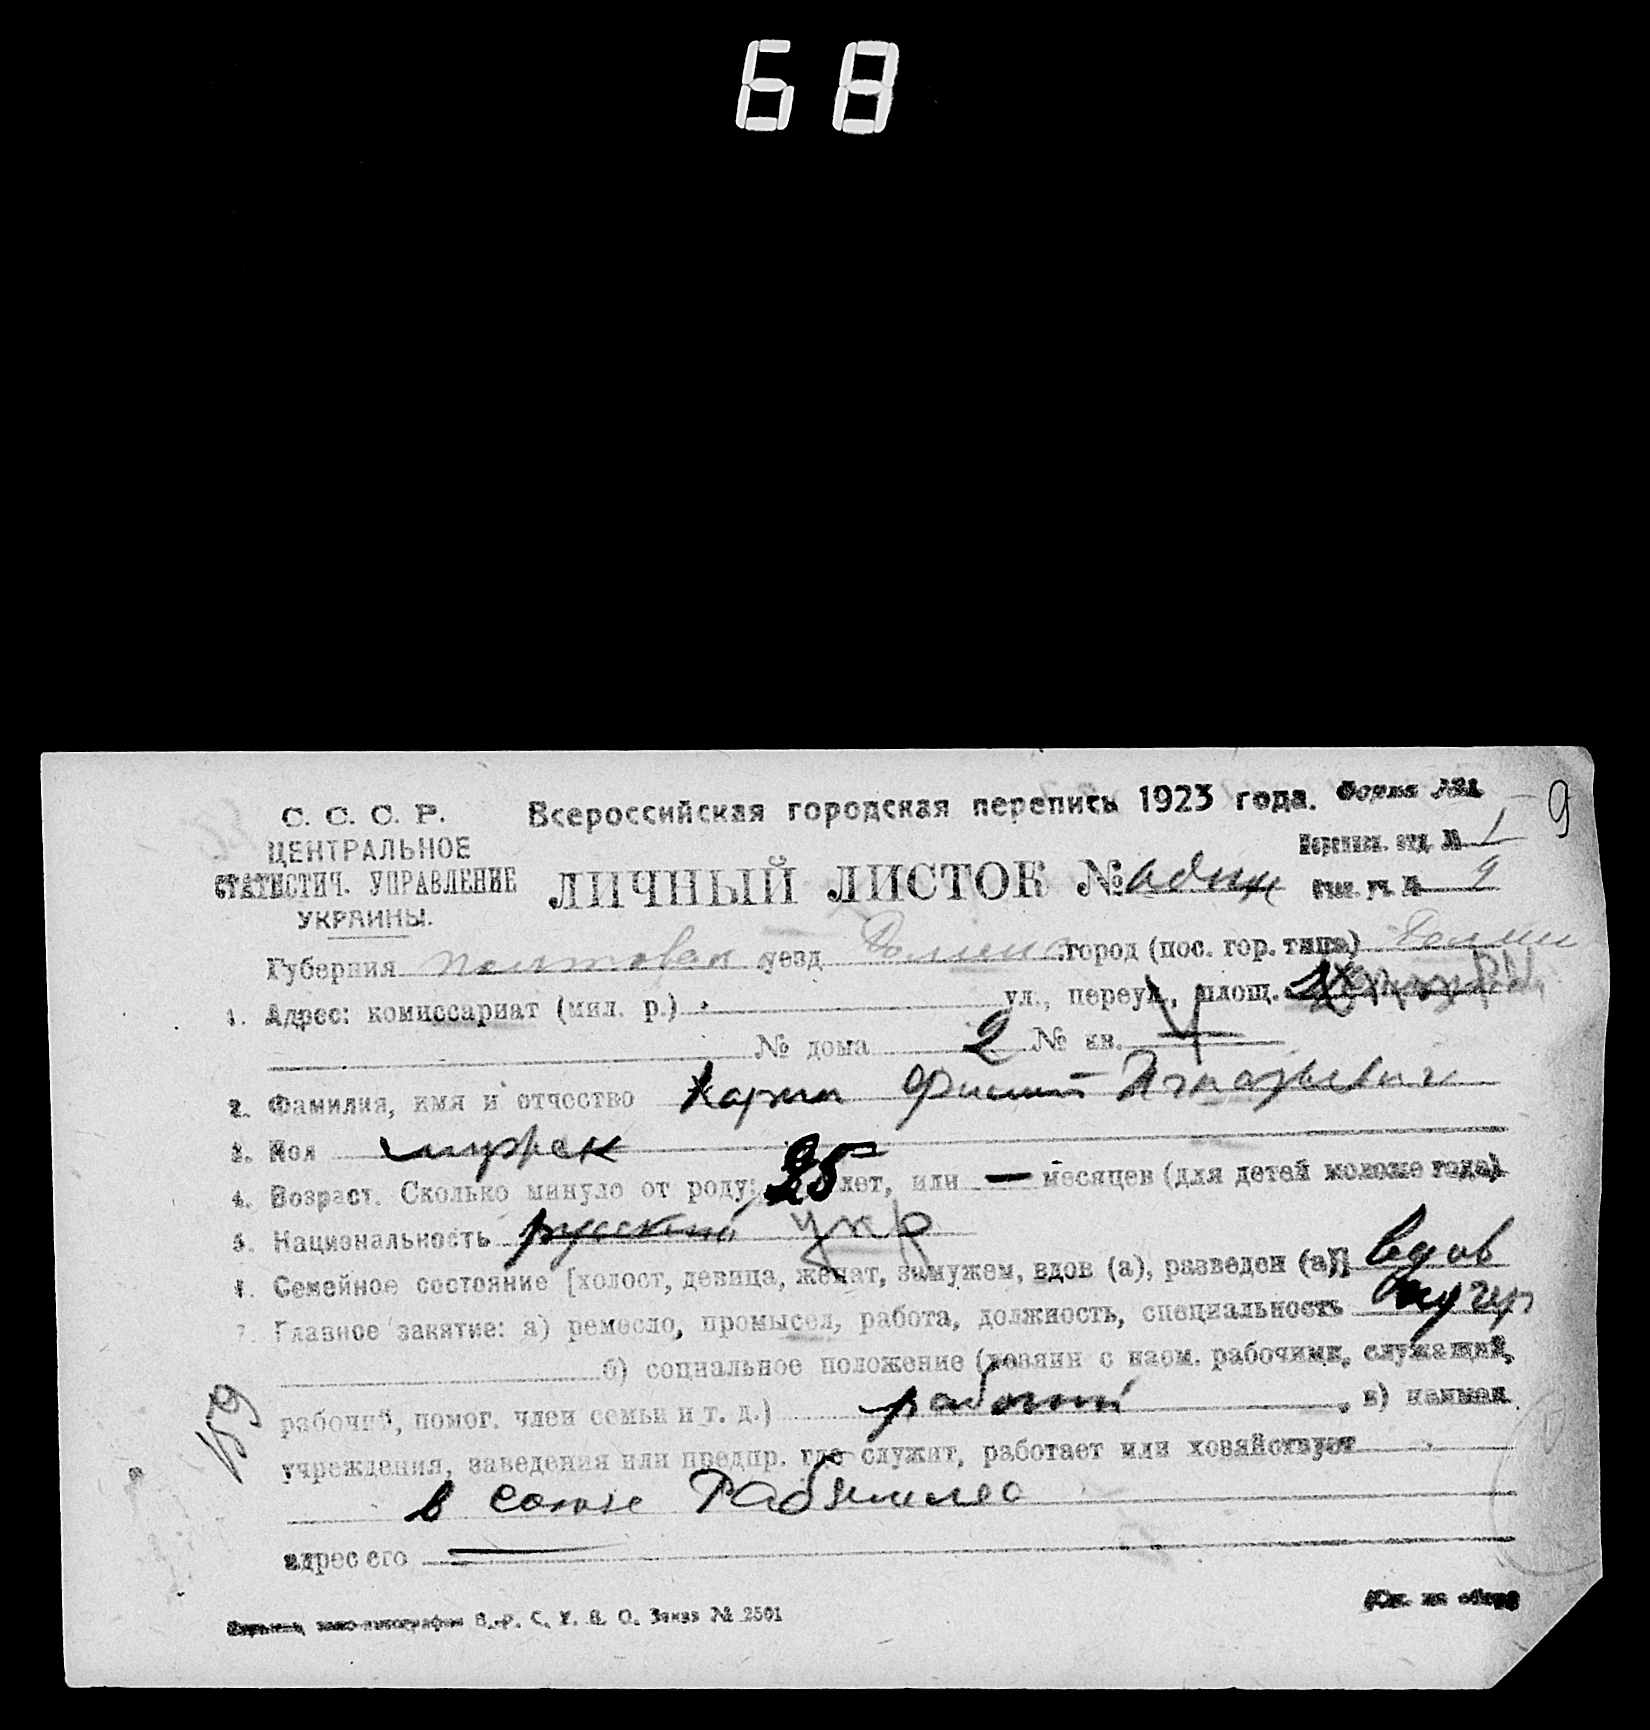 68
С. С. С. Р.
ЦЕНТРАЛЬНОЕ
СТАТИСТИЧ. УПРАВЛЕНИЕ
УКРАИНЫ.
Всероссийская городская перепись 1923 года. Форма №1
9
ЛИЧНЫЙ ЛИСТОК № один
Переписн. отд. № 1
Счетн. уч. № 9
Губерния Полтовская уезд город (пос. гор. типа)
1. Адрес: комиссариат (мил. р.) ул., переул., площ.
№ дома 2 № кв.
2. Фамилия, имя и отчество Игнатьевич
3. Пол мужск
4. Возраст. Сколько минуло от роду: 25 лет, или — месяцев (для детей моложе года)
5. Национальность русский укр
6. Семейное состояние [холост, девица, женат, замужем, вдов (а), разведен (а)] вдов
7. Главное занятие: а) ремесло, промысел, работа, должность, специальность кучер
б) социальное положение (хозяин с наем. рабочими, служащий,
рабочий, помог. член семьи и т. д.) рабочий, в) наимен.
учреждения, заведения или предпр. где служит, работает или хозяйствует
в союзе Рабземлес
адрес его —
159
Заказ № 2501
(См. на обор)